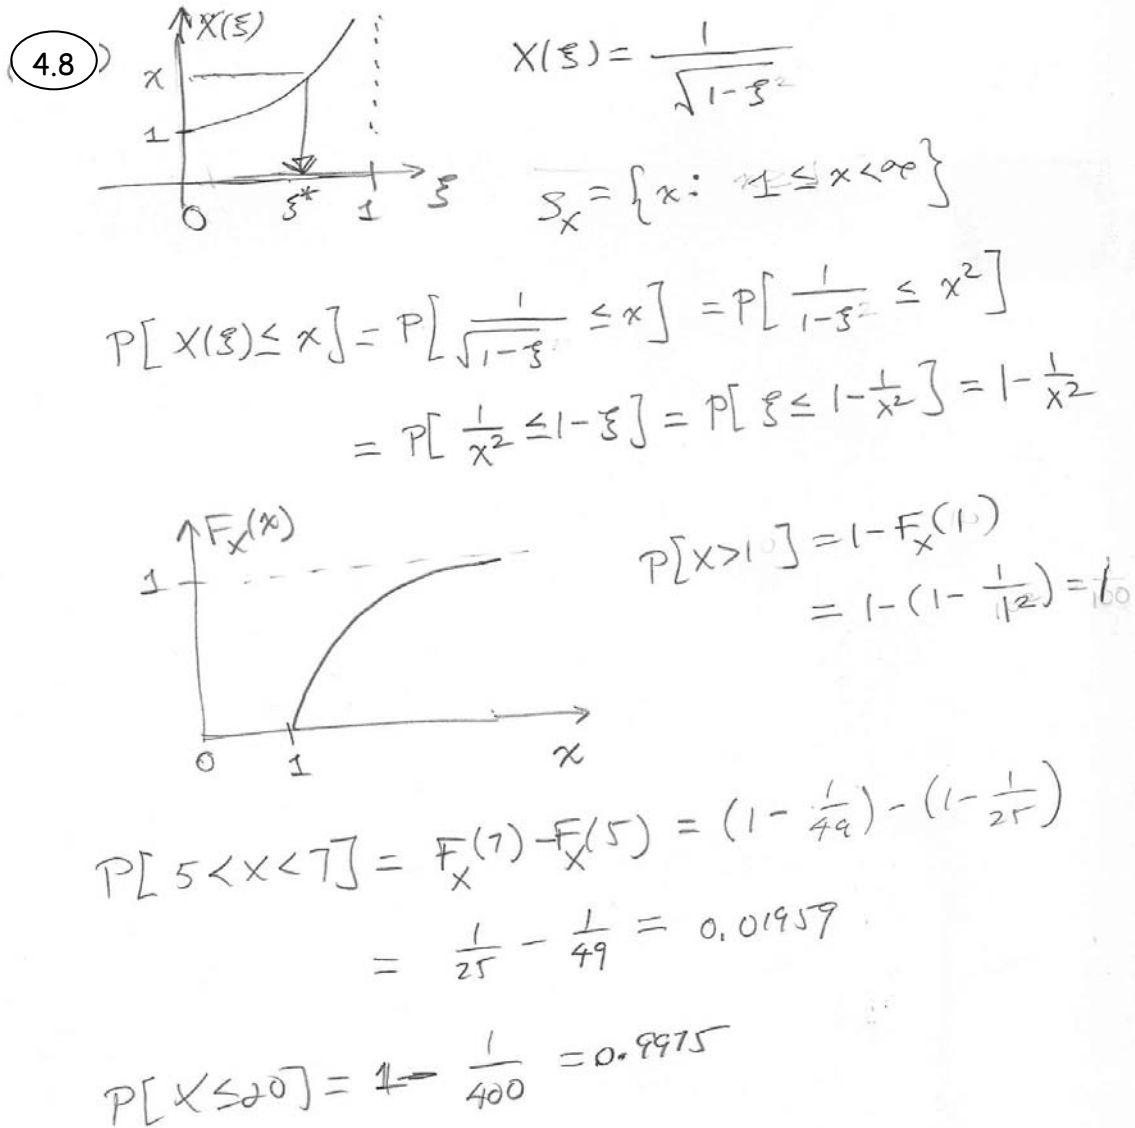 4.8
X(ξ)
x
1
0 ξ* 1 ξ
X(ξ) = 1/√(1-ξ²)
S_X = {x: 1 ≤ x < ∞}
P[X(ξ) ≤ x] = P[1/√(1-ξ) ≤ x] = P[1/(1-ξ²) ≤ x²]
= P[1/x² ≤ 1-ξ] = P[ξ ≤ 1-1/x²] = 1-1/x²
F_X(x)
1
0 1 x
P[X>1] = 1-F_X(1)
= 1-(1-1/1²) = 1
P[5<X<7] = F_X(7)-F_X(5) = (1-1/49)-(1-1/25)
= 1/25 - 1/49 = 0.01959
P[X≤20] = 1-1/400 = 0.9975